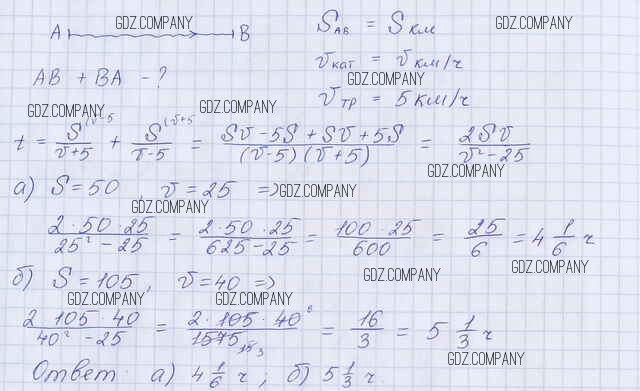 GDZ.COMPANY
A B
S_AB = S км
GDZ.COMPANY
v_кат = v км/ч
AB + BA - ?
GDZ.COMPANY
v_тр = 5 км/ч
GDZ.COMPANY GDZ.COMPANY
t = S^(v-5 / (v+5) + S^(v+5 / (v-5) = (Sv - 5S + Sv + 5S) / ((v-5)(v+5)) = 2Sv / (v² - 25)
GDZ.COMPANY
а) S = 50, v = 25 => GDZ.COMPANY
GDZ.COMPANY
2·50·25 / (25² - 25) = 2·50·25 / (625 - 25) = 100·25 / 600 = 25/6 = 4 1/6 ч
GDZ.COMPANY
б) S = 105, v = 40 =>
GDZ.COMPANY
GDZ.COMPANY GDZ.COMPANY
2·105·40 / (40² - 25) = 2·105·40⁸ / 1575 15 3 = 16/3 = 5 1/3 ч
GDZ.COMPANY
Ответ: а) 4 1/6 ч; б) 5 1/3 ч.